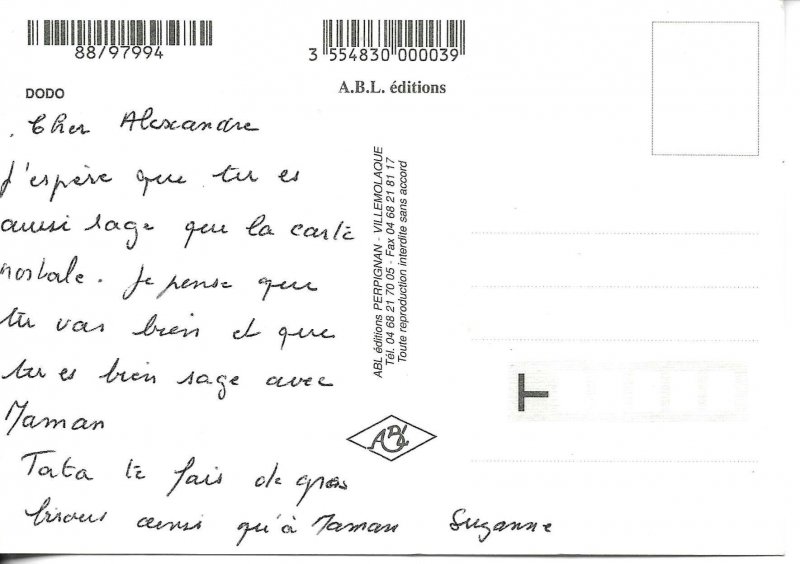 88/97994
3 554830 000039
DODO
A.B.L. éditions
Cher Alexandre
J'espère que tu es
aussi sage que la carte
postale. Je pense que
tu vas bien et que
tu es bien sage avec
Maman
Tata te fais de gros
bisous ainsi qu'à Maman Suzanne
ABL éditions PERPIGNAN - VILLEMOLAQUE
Tél. 04 68 21 70 05 - Fax 04 68 21 81 17
Toute reproduction interdite sans accord
ABL
T